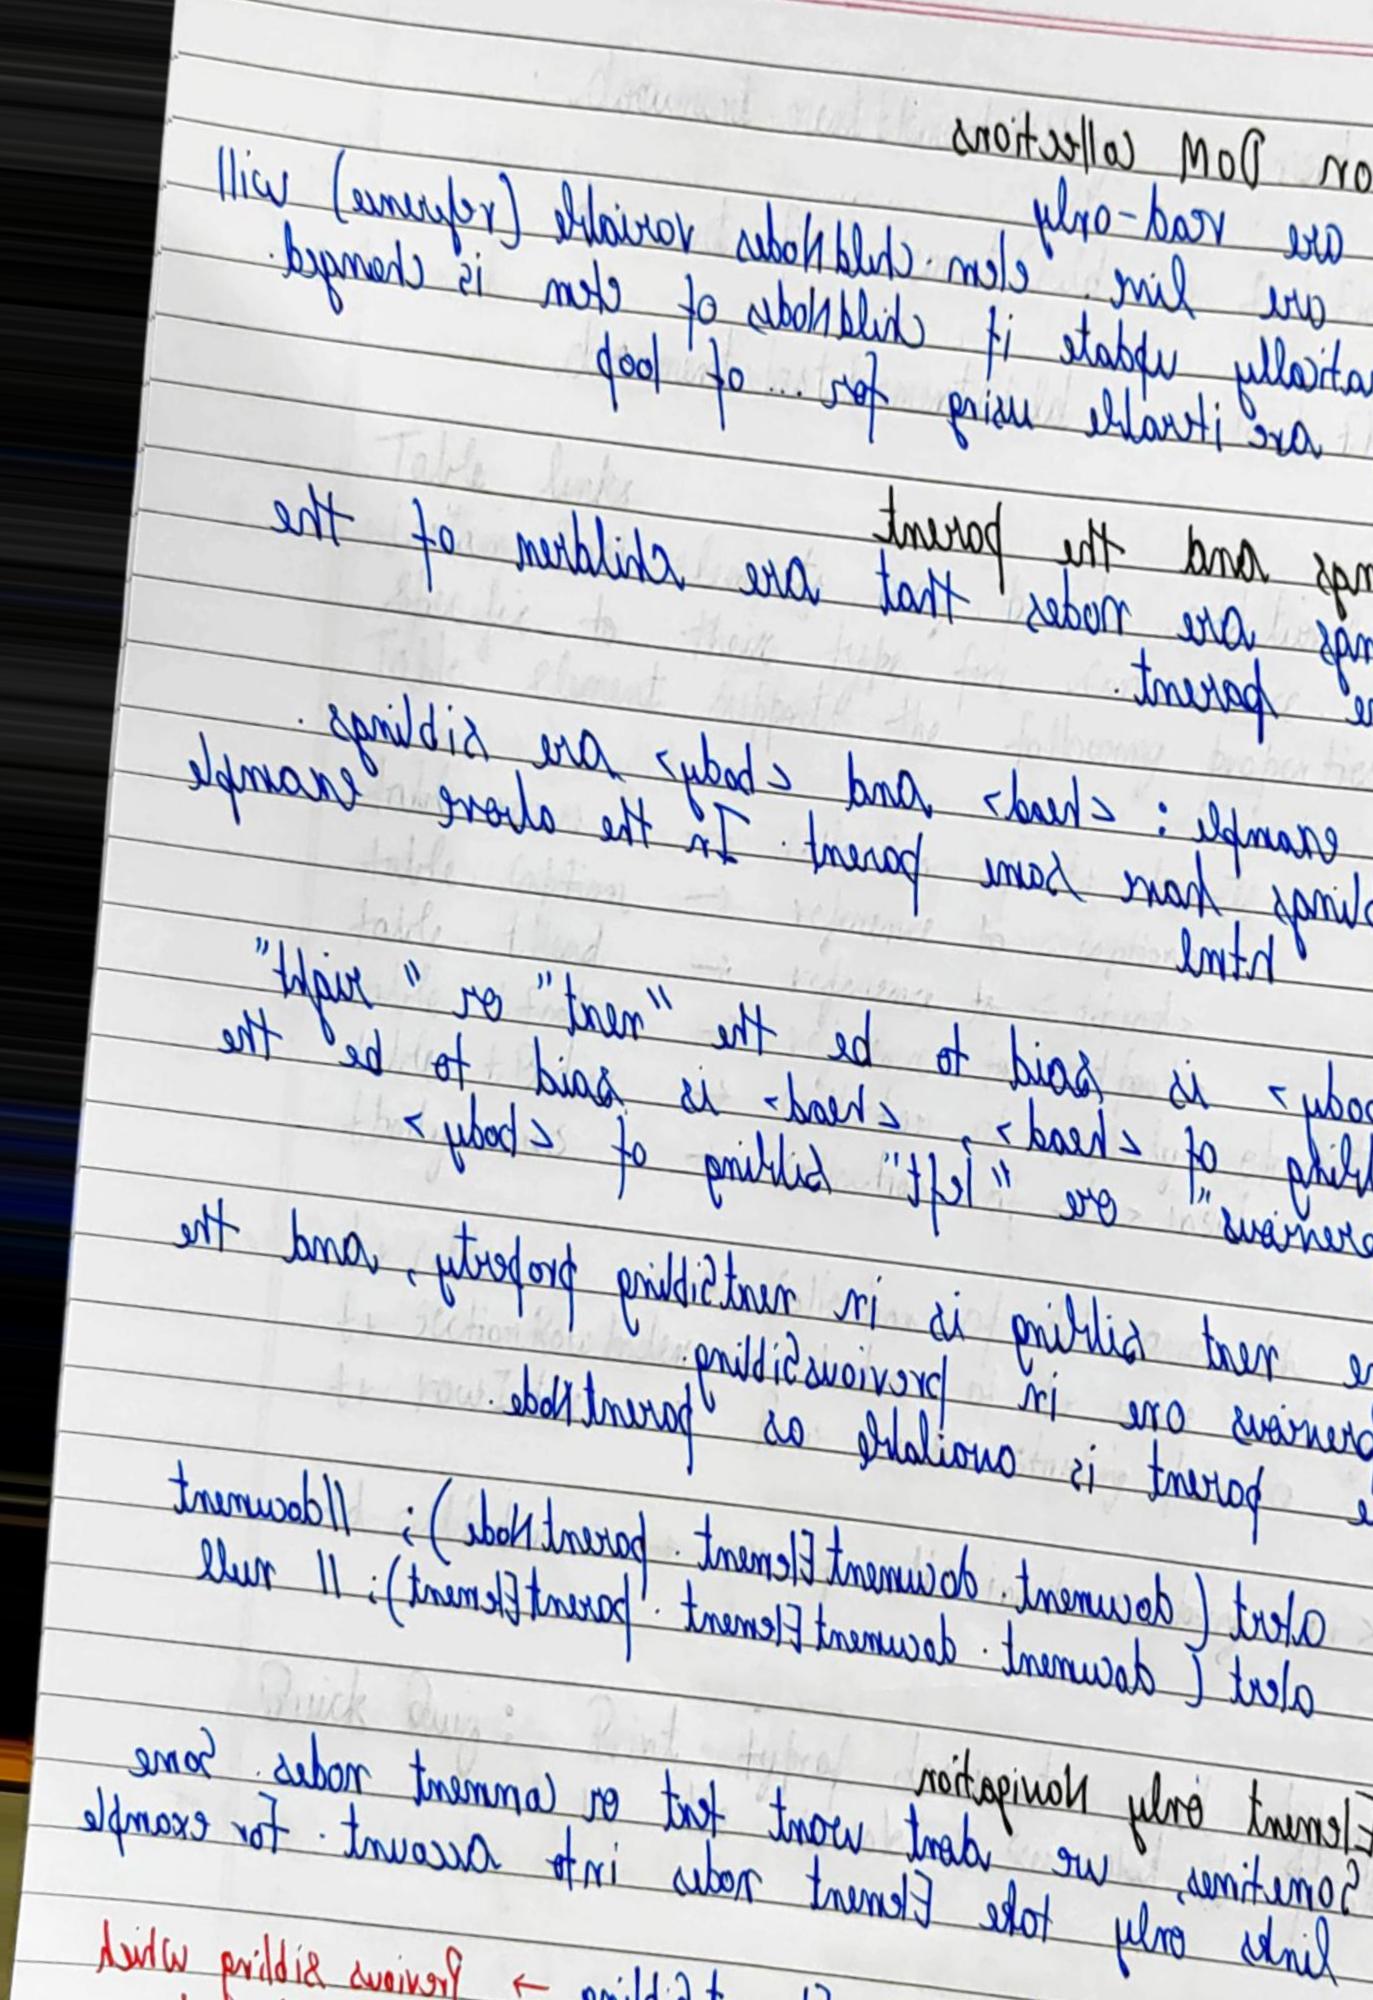 on DOM collections
are read-only
are live. elem.childNodes variable (reference) will
atically update if childNodes of elem is changed.
are iterable using for... of loop
ngs and the parent
ngs are nodes that are children of the
parent.
example : <head> and <body> are siblings.
lings have same parent. In the above example
html
body> is said to be the "next" or "right"
bling of <head>, <head> is said to be the
previous" or "left" sibling of <body>
next sibling is in nextSibling property, and the
previous one in previousSibling.
parent is available as parentNode.
alert (document.documentElement.parentNode); //document
alert (document.documentElement.parentElement); // null
Element only Navigation
Sometimes, we dont want text or comment nodes. Some
links only take Element nodes into account. For example
→ Previous sibling which